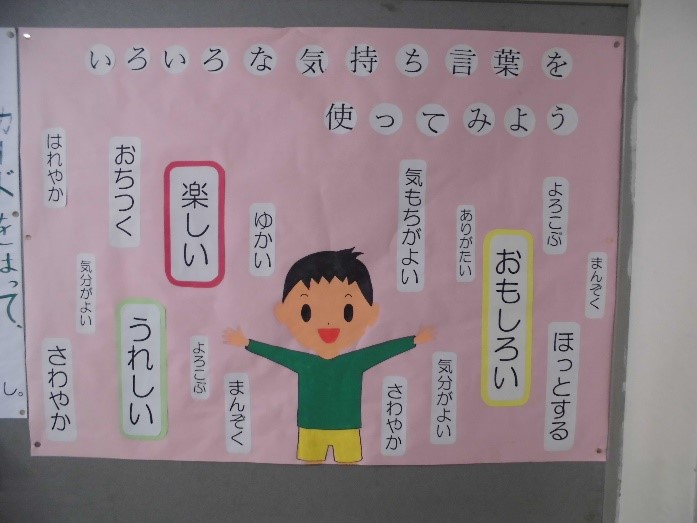 いろいろな気持ち言葉を
使ってみよう
まんぞく
よろこぶ
ほっとする
おもしろい
ありがたい
気分がよい
気もちがよい
さわやか
ゆかい
まんぞく
楽しい
よろこぶ
おちつく
うれしい
気分がよい
はれやか
さわやか
し。